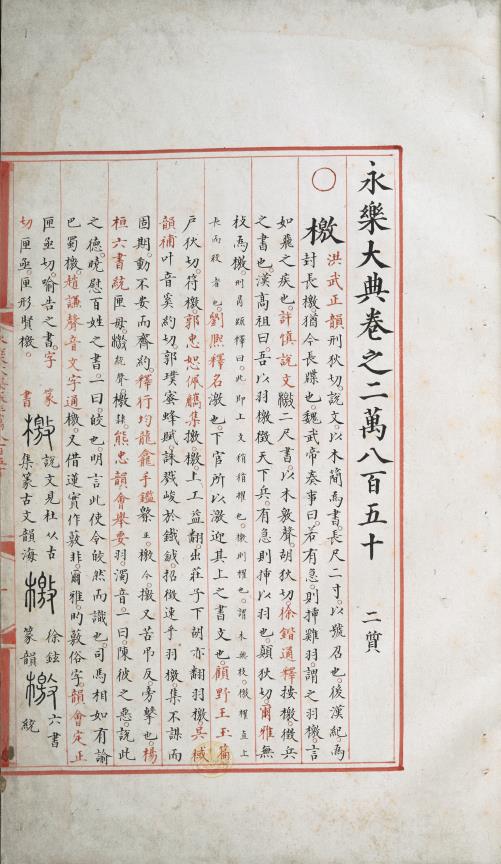 永樂大典卷之二萬八百五十 二質
○檄 洪武正韻刑狄切說文以木簡為書長尺二寸以號召也後漢紀為
封長檄猶今長牒也魏武帝奏事曰若有急則揷雞羽謂之羽檄言
如飛之疾也許慎說文檄二尺書以木敫聲胡狄切徐鍇通釋按檄徵兵
之書也漢高祖曰吾以羽檄徵天下兵有急則揷以羽也顛狄切爾雅無
枝為檄
卡而殺者也劉熙釋名激也下官所以激迎其上之書文也顧野王玉篇
戶狄切符檄郭忠恕佩觿集撽檄上工益翻出莊子下胡亦翻羽檄吳棫
韻補叶音奚約切郭璞蜜蜂賦誅戮峻於鐵鉞招徵速乎羽檄集不謀而
固期動不妄而齊約釋行均龍龕手鑑檄今檄又苦吊反旁擊也楊
桓六書統匣母檄統聲檄隸熊忠韻會舉要羽濁音一曰陳彼之惡說此
之德曉慰百姓之書一曰皎也明言此使令皎然而識也司馬相如有諭
巴蜀檄趙謙聲音文字通檄又借蓮實作敫非爾雅的敫俗字韻會定正
字切匣亟匣亟切喻告之書
匣形賢檄
篆書 檄集篆古文韻海 說文見杜从古 檄 徐鉉篆韻 檄 六書統